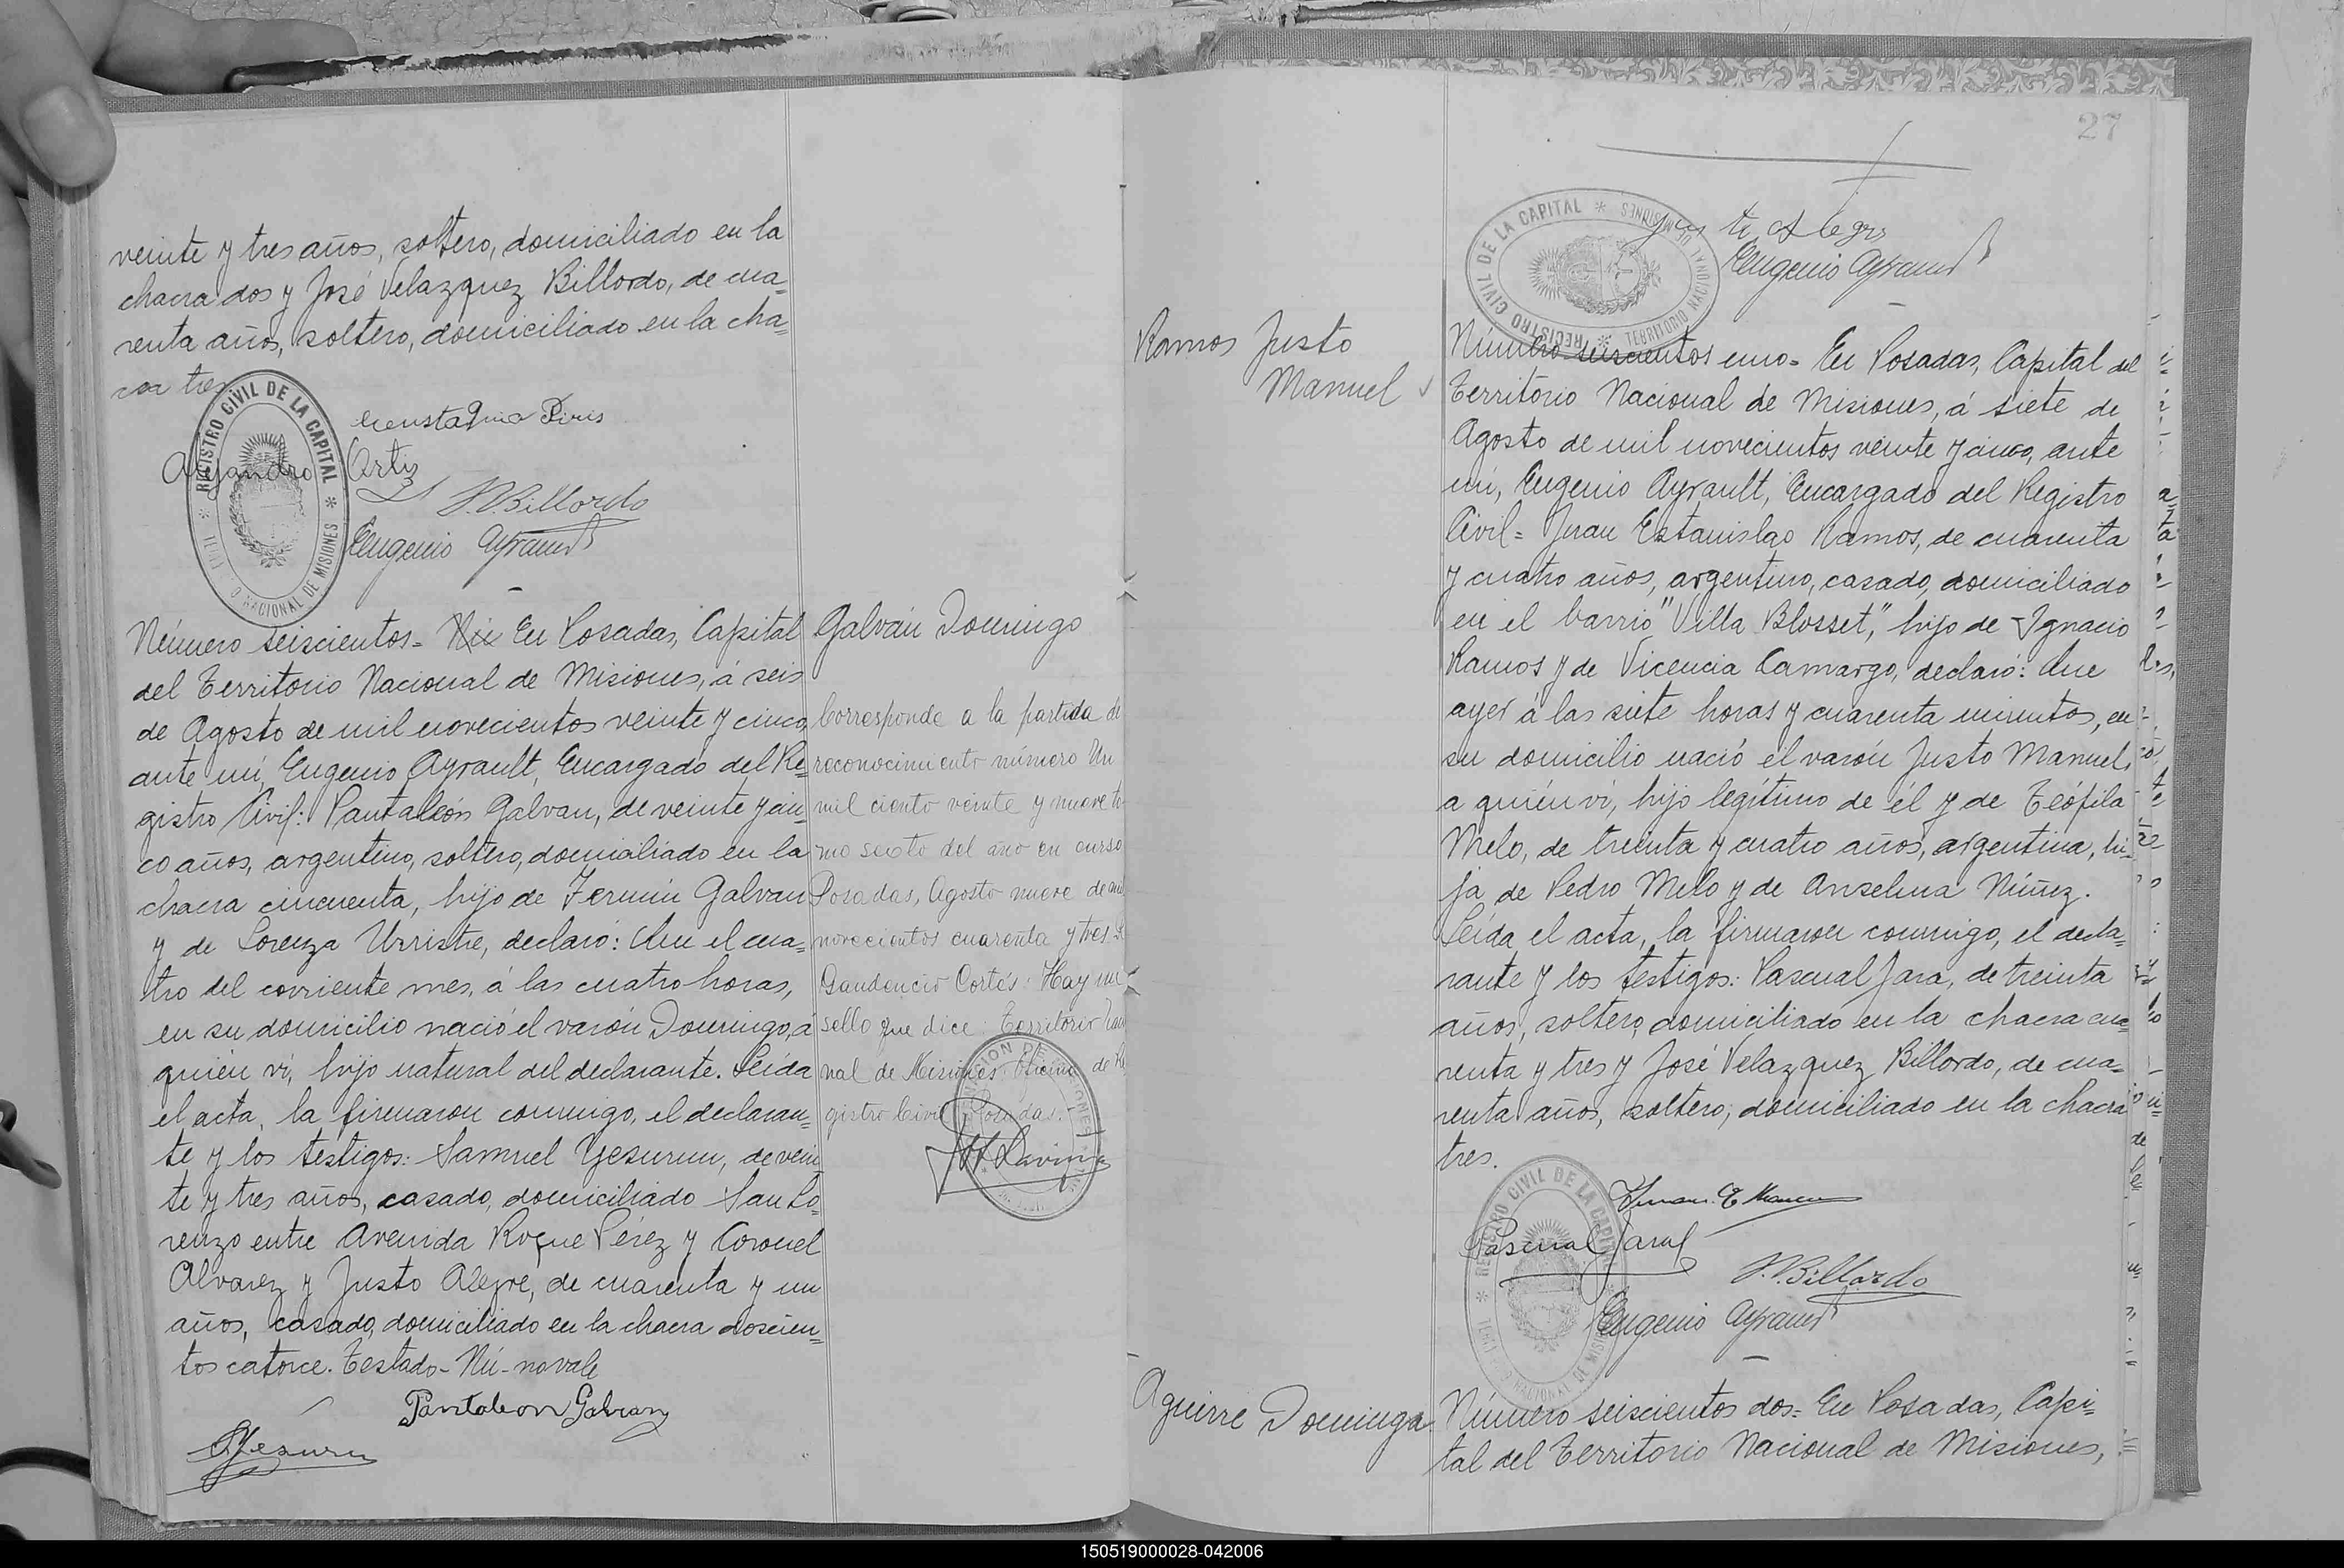 veinte y tres años, soltero, domiciliado en la
chacra dos y José Velazquez Billordo, de cua=
renta años, soltero, domiciliado en la cha=
cra tres
REGISTRO CIVIL DE LA CAPITAL
NACIONAL DE MISIONES
Piris
Alejandro Ortiz
J.V.Billordo
Eugenio Ayrault
Número seiscientos= Nú En Posadas, Capital
del Territorio Nacional de Misiones, á seis
de Agosto de mil novecientos veinte y cinco,
ante mí, Eugenio Ayrault, Encargado del Re=
gistro Civil: Pantaleón Galvan, de veinte y cin=
co años, argentino, soltero, domiciliado en la
chacra cincuenta, hijo de Fermin Galvan
y de Lorenza Urriste, declaró: Que el cua=
tro del corriente mes, á las cuatro horas,
en su domicilio nació el varón Domingo, á
quién ví, hijo natural del declarante. Leída
el acta, la firmaron conmigo, el declaran=
te y los testigos: Samuel Yesurun, de vein
te y tres años, casado, domiciliado San Lo=
renzo entre Avenida Roque Pérez y Coronel
Alvarez y Justo Alegre, de cuarenta y un
años, casado, domiciliado en la chacra doscien=
tos catorce. Testado-Nú-no vale
Pantaleon Galvan
SYesurun
Galván Domingo
Corresponde a la partida de
reconocimiento número Un
mil ciento veinte y nueve to
mo sexto del año en curso
Posadas, Agosto nueve de mil
novecientos cuarenta y tres.
Gaudencio Cortés: Hay un
sello que dice: Territorio Nacio
nal de Misiones Oficina de Re
gistro Civil Posadas.
27
REGISTRO CIVIL DE LA CAPITAL
TERRITORIO NACIONAL DE MISIONES
Justo Alegre
Eugenio Ayrault
Ramos Justo
Manuel
Número seiscientos uno= En Posadas, Capital del
Territorio Nacional de Misiones, á siete de
Agosto de mil novecientos veinte y cinco, ante
mí, Eugenio Ayrault, Encargado del Registro
Civil= Juan Estanislao Ramos, de cuarenta
y cuatro años, argentino, casado, domiciliado
en el barrio "Villa Blosset," hijo de Ignacio
Ramos y de Vicencia Camargo, declaró: Que
ayer á las siete horas y cuarenta minutos, en
su domicilio nació el varón Justo Manuel,
a quién ví, hijo legítimo de él y de Teófila
Melo, de treinta y cuatro años, argentina, hi=
ja de Pedro Melo y de Anselma Núñez.
Leída el acta, la firmaron conmigo, el decla=
rante y los testigos: Pascual Jara, de treinta
años, soltero, domiciliado en la chacra cua=
renta y tres y José Velazquez Billordo, de cua=
renta años, soltero, domiciliado en la chacra
tres.
REGISTRO CIVIL DE LA CAPITAL
Juan E Ramos
Pascual Jara
J.V.Billordo
Eugenio Ayrault
Aguirre Dominga
Número seiscientos dos= En Posadas, Capi=
tal del Territorio Nacional de Misiones,
150519000028-042006